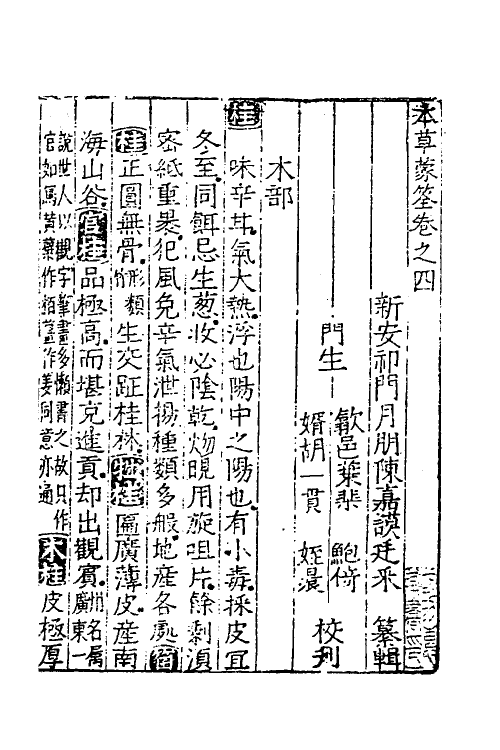 本草蒙筌卷之四
新安祁門月朋陳嘉謨廷采 纂輯
歙邑葉棐 鮑倚
門生 校刋
婿胡一貫 姪㬎
木部
桂 味辛甘氣大熱浮也陽中之陽也有小毒採皮宜
冬至同餌忌生葱收必陰乾勿晛用旋咀片餘剩湏
宻紙重裹犯風免辛氣泄揚種類多般地産各處箘
桂正圓無骨形類竹生交趾桂林牡桂匾廣薄皮産南
海山谷官桂品極高而堪充進貢却出觀賔州名屬廣東一
說世人以觀字筆畫多懶書之故只作
官如馬黄蘗作栢薑作姜同意亦通木桂皮極厚